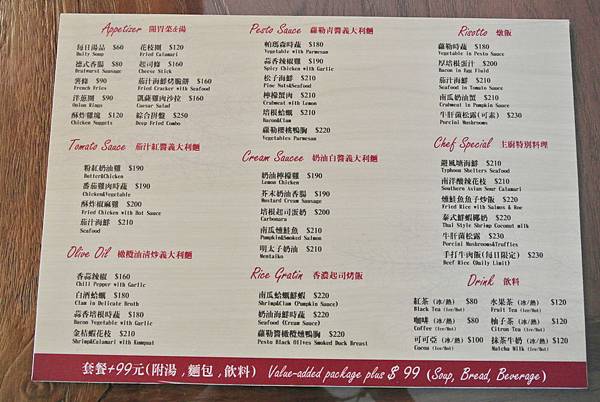 Appetizer 開胃菜&湯
每日湯品 $60
Daily Soup
花枝圈 $120
Fried Calamari
德式香腸 $80
Bratwurst Sausage
起司條 $160
Cheese Stick
薯條 $90
French Fries
茄汁海鮮烤脆餅 $160
Fried Cracker with Seafood
洋蔥圈 $90
Onion Rings
凱薩雞肉沙拉 $160
Caesar Salad
酥炸雞塊 $120
Chicken Nuggets
綜合拼盤 $250
Deep Fried Combo
Tomato Sauce 茄汁紅醬義大利麵
粉紅奶油雞 $190
Butter&Chicken
番茄雞肉時蔬 $190
Chicken&Vegetable
酥炸椒麻雞 $200
Fried Chicken with Hot Sauce
茄汁海鮮 $210
Seafood
Olive Oil 橄欖油清炒義大利麵
香蒜辣椒 $160
Chili Pepper with Garlic
白酒蛤蠣 $180
Clam in Delicate Broth
蒜香培根時蔬 $180
Bacon Vegetable with Garlic
金桔蝦花枝 $210
Shrimp&Calamari with Kumquat
Pesto Sauce 蘿勒青醬義大利麵
帕瑪森時蔬 $180
Vegetable with Parmesan
蒜香辣椒雞 $190
Spicy Chicken with Garlic
松子海鮮 $210
Pine Nuts&Seafood
檸檬蟹肉 $210
Crabmeat with Lemon
培根蛤蠣 $210
Bacon&Clam
蘿勒櫻桃鴨胸 $220
Vegetables Parmesan
Cream Saucee 奶油白醬義大利麵
奶油檸檬雞 $190
Lemon Chicken
芥末奶油香腸 $190
Mustard Cream Sausage
培根起司蛋奶 $200
Carbonara
南瓜燻鮭魚 $210
Pumpkin&Smoked Salmon
明太子奶油 $210
Mentaiko
Rice Gratin 香濃起司烤飯
南瓜蛤蠣鮮蝦 $220
Shrimp&Clam (Pumpkin Sauce)
奶油海鮮時蔬 $220
Seafood (Cream Sauce)
蘿勒醬橄欖燻鴨胸 $220
Pesto Black Olives Smoked Duck Breast
Risotto 燉飯
蘿勒時蔬 $180
Vegetable in Pesto Sauce
厚培根蛋汁 $200
Bacon in Egg Fluid
茄汁海鮮 $210
Seafood in Tomato Sauce
南瓜奶油蟹 $210
Crabmeat in Pumpkin Sauce
牛肝菌松露(可素) $230
Porcini Mushrooms
Chef Special 主廚特別料理
避風塘海鮮 $210
Typhoon Shelters Seafood
南洋酸辣花枝 $210
Southern Asian Sour Calamari
燻鮭魚魚子炒飯 $220
Fried Rice with Salmon & Roe
泰式鮮蝦椰奶 $220
Thai Style Shrimp Coconut milk
牛肝菌松露 $230
Porcini Mushrooms&Truffles
手打牛肉飯(每日限定) $230
Beef Rice (Daily Limit)
Drink 飲料
紅茶 (冰/熱) $80
Black Tea (Ice/Hot)
水果茶 (冰/熱) $120
Fruit Tea (Ice/Hot)
咖啡 (冰/熱) $80
Coffee (Ice/Hot)
柚子茶 (冰/熱) $120
Citron Tea (Ice/Hot)
可可亞 (冰/熱) $100
Cocoa (Ice/Hot)
抹茶牛奶 (冰/熱) $120
Matcha Milk (Ice/Hot)
套餐+99元(附湯,麵包,飲料) Value-added package plus $ 99 (Soup, Bread, Beverage)